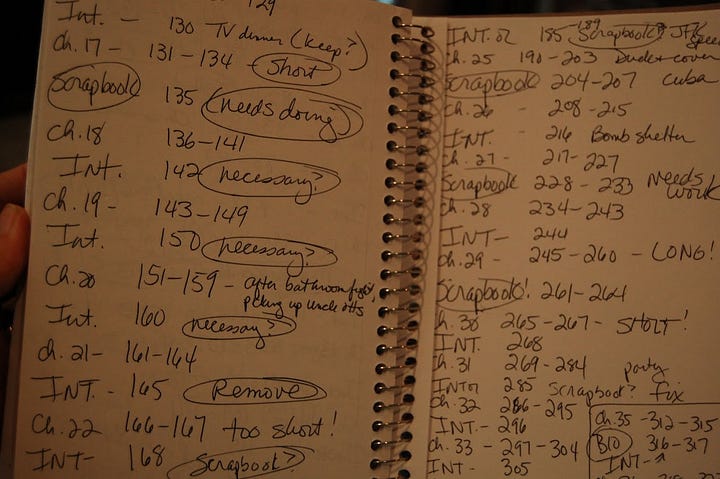 129
Int. - 130 TV dinner (keep?)
Ch. 17 - 131-134 - Short
Scrapbook 135 (needs doing)
Ch. 18 136-141
Int. 142 necessary?
Ch. 19 - 143-149
Int. 150 necessary?
Ch. 20 151-159 - after bathroom fight,
picking up uncle otts
Int. 160 necessary?
Ch. 21 - 161-164
INT. - 165 Remove
Ch. 22 166-167 too short!
INT - 168 Scrapbook?
INT. or 185-189 Scrapbook? JFK
Speech
Ch. 25 190-203 Duck + cover
Scrapbook 204-207 Cuba
Ch. 26 - 208-215
INT. 216 Bomb shelter
Ch. 27 - 217-227
Scrapbook 228-233 Needs
work
Ch. 28 234-243
INT - 244
Ch. 29 - 245-260 - LONG!
Scrapbook! 261-264
Ch. 30 265-267 - SHORT!
INT. 268
Ch. 31 269-284 party
INT or 285 Scrapbook? fix
Ch. 32 286-295
INT. - 296
Ch. 33 - 297-304
INT - 305
Ch. 35 - 312-315
BIO 316-317
INT -